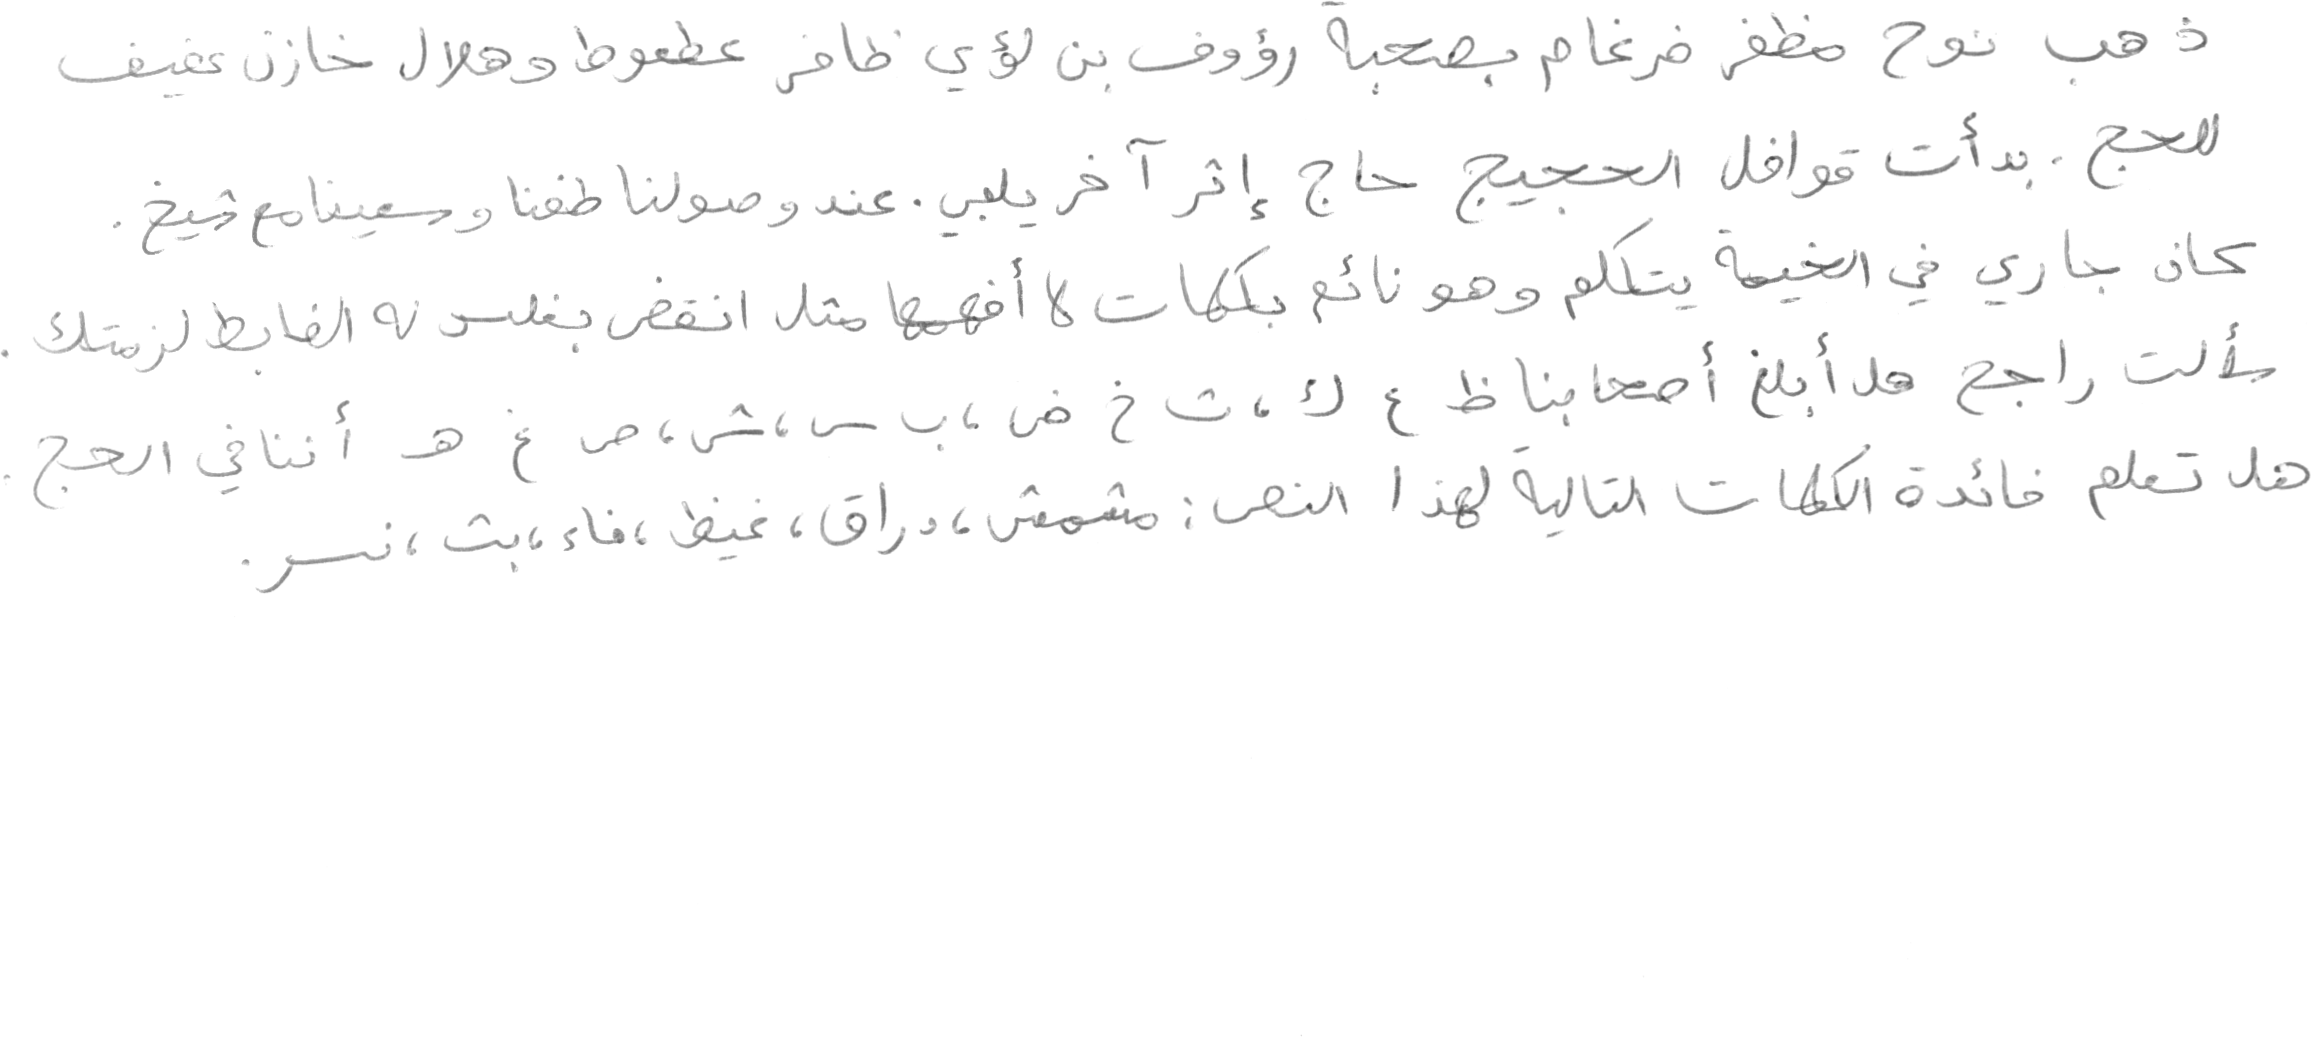 ذهب نوح مظفر ضرغام بصحبة رؤوف بن لؤي ظافر عطعوط وهلال خازن عفيف
للحج. بدأت قوافل الحجيج حاج إثر آخر يلبي. عند وصولنا طفنا وسعينا مع شيخ.
كان جاري في الخيمة يتكلم وهو نائم بكلمات لا أفهمها مثل انقض بغلس نه الضابط لزمتك.
سألت راجح هل أبلغ أصحابنا ظ ع ك، ث خ ض، ب س، ش، ص غ هـ أننا في الحج.
هل تعلم فائدة الكلمات التالية لهذا النص: مشمش، دراق، غيظ، فاء، بث، نسر.